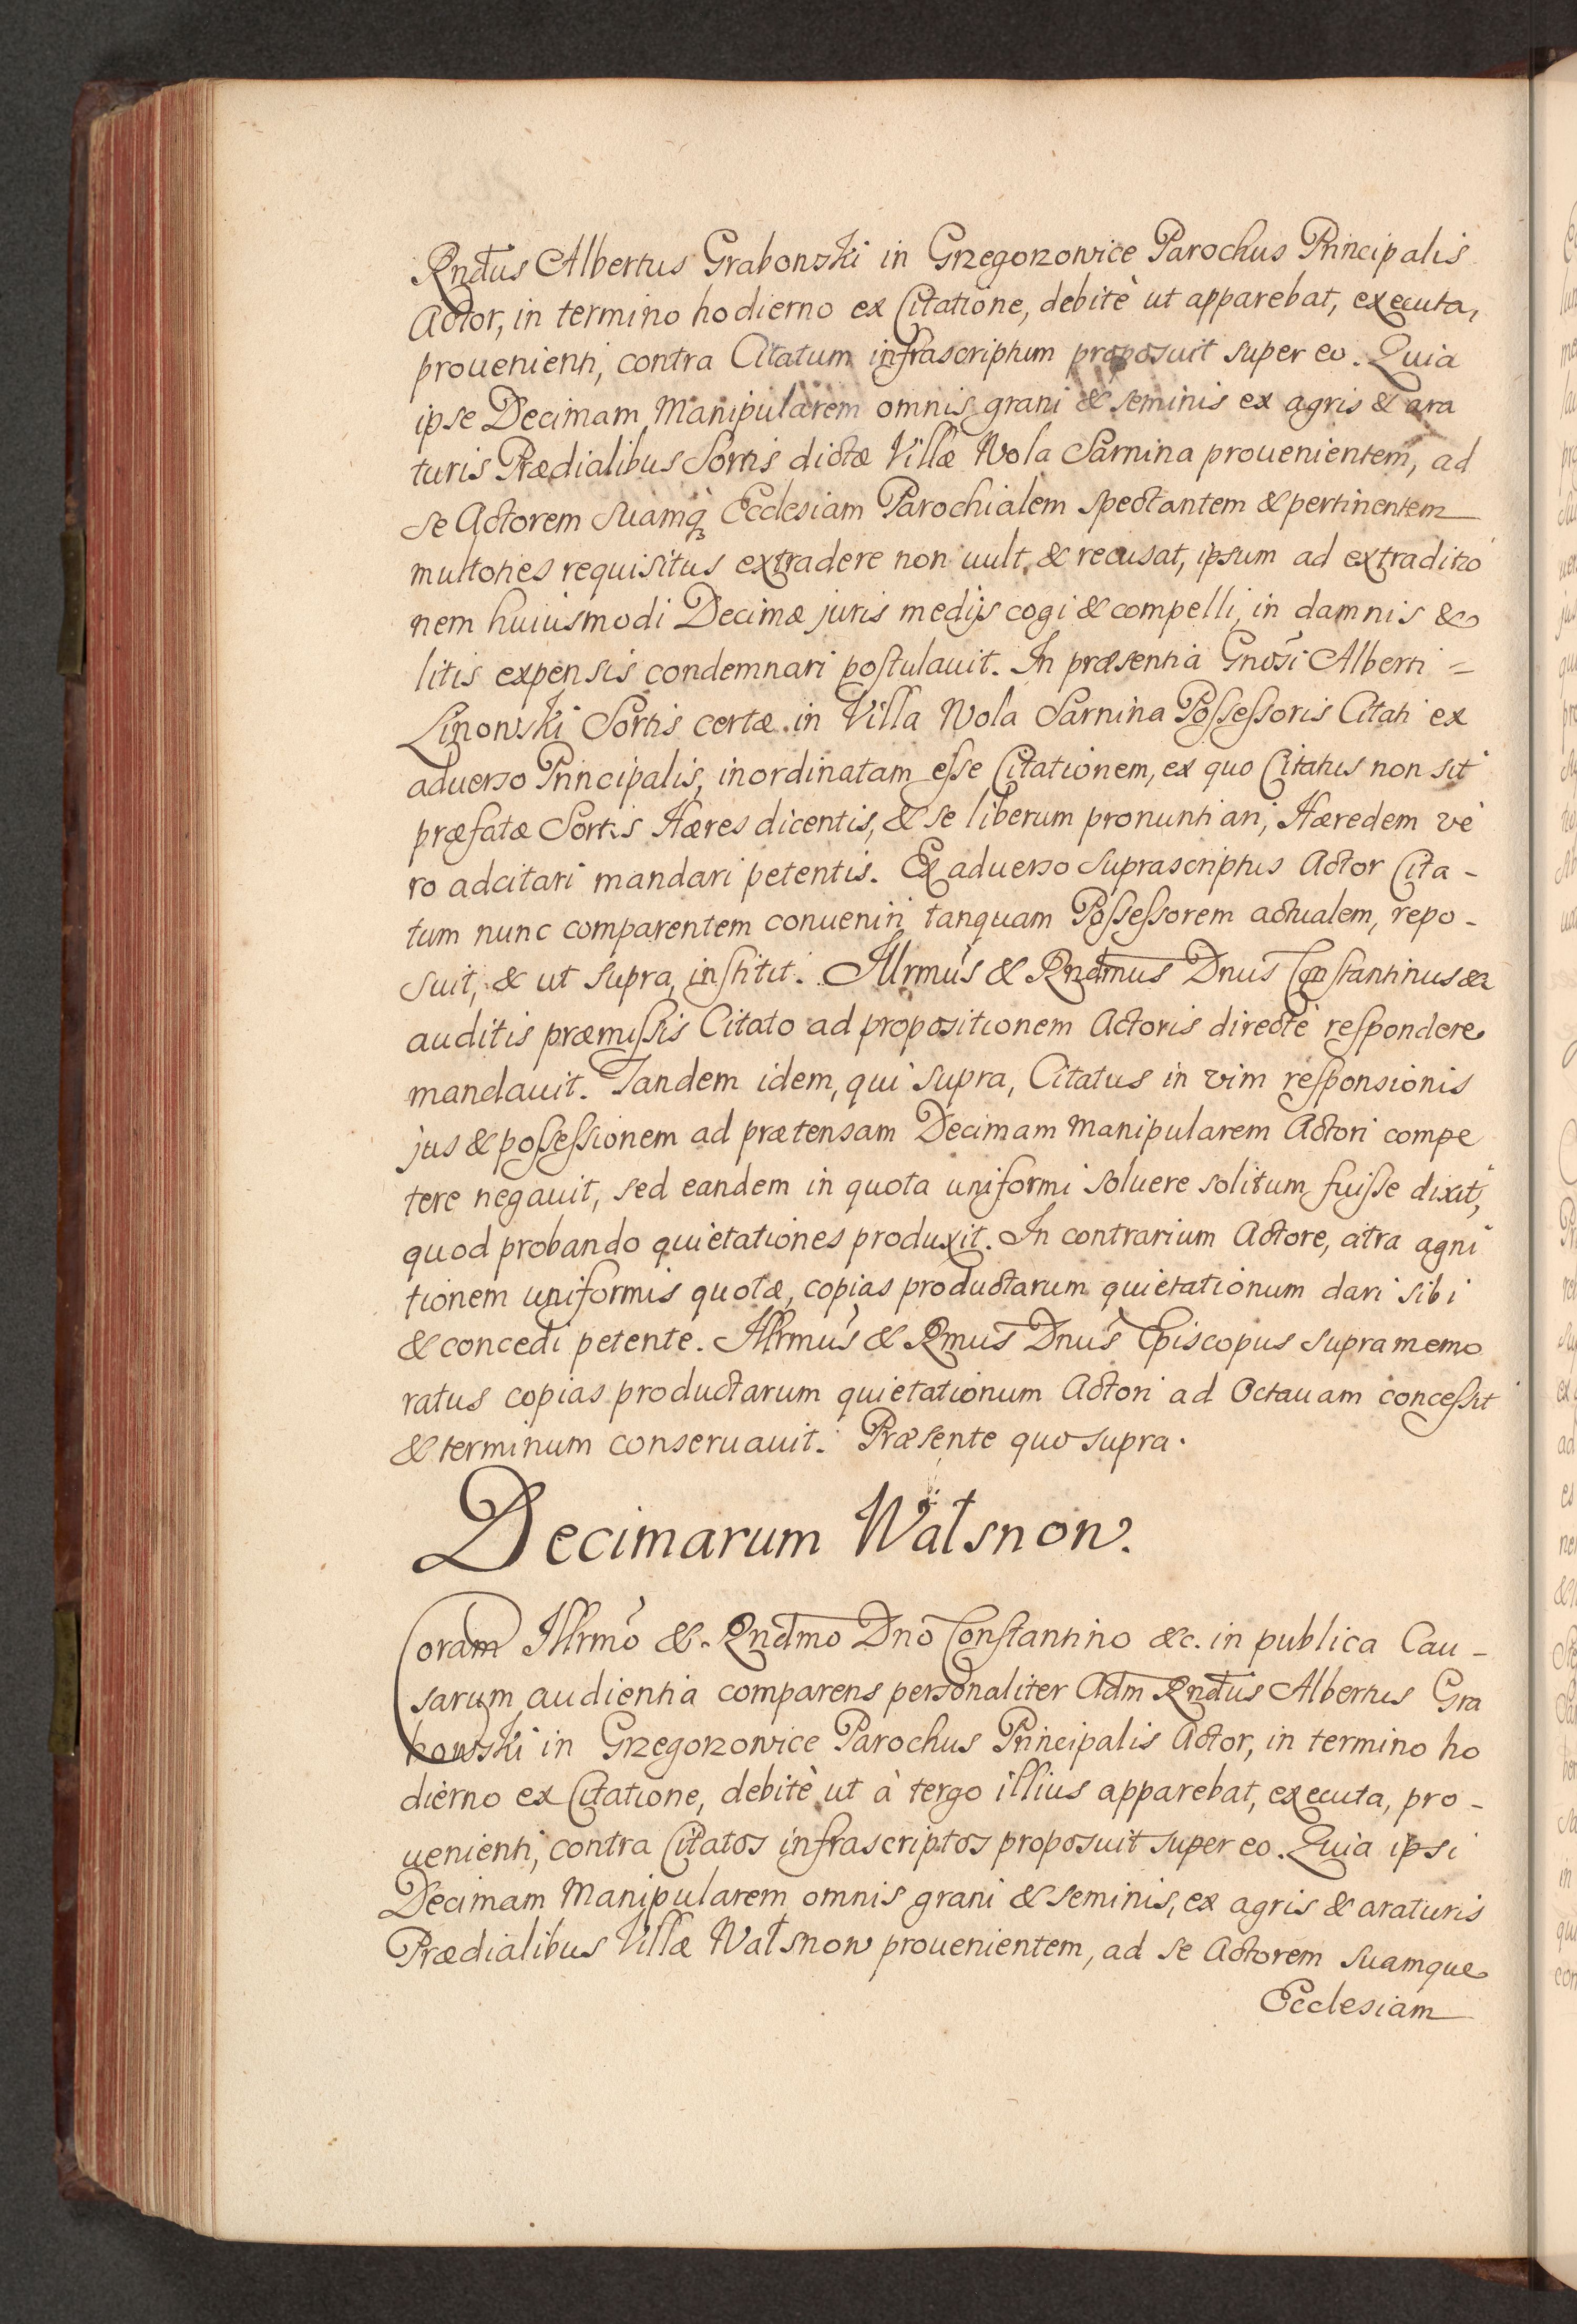 Rndus Albertus Grabowski in Grzegorzowice Parochus Principalis
Actor, in termino hodierno ex Citatione, debitè ut apparebat, executa,
prouenienti, contra Citatum infrascriptum proposuit super eo. Quia
ipse Decimam Manipularem omnis grani & seminis ex agris & ara
turis Prædialibus Sortis dictæ Villæ Wola Sarnina prouenientem, ad
se Actorem Suamq̃ Ecclesiam Parochialem spectantem & pertinentem
multoties requisitus extradere non uult, & recusat, ipsum ad extraditio
nem huiusmodi Decimæ juris medijs cogi & compelli, in damnis &
litis expensis condemnari postulauit. In præsentia Gnosi Alberti =
Linowski Sortis certæ in Villa Wola Sarnina Possessoris Citati ex
aduerso Principalis, inordinatam esse Citationem, ex quo Citatus non sit
præfatæ Sortis Hæres dicentis, & se liberum pronuntiari, Hæredem vè
ro adcitari mandari petentis. Ex aduerso Suprascriptus Actor Cita -
tum nunc comparentem conueniri, tanquam Possessorem actualem, repo -
suit, & ut supra, institit. Illrmus & Rndmus Dnus Constantinus &
auditis præmissis Citato ad propositionem Actoris directè respondere
mandauit. Tandem idem, qui supra, Citatus in vim responsionis
jus & possessionem ad prætensam Decimam Manipularem Actori compe
tere negauit, sed eandem in quota uniformi soluere solitum fuisse dixit,
quod probando quietationes produxit. In contrarium Actore, citra agni
tionem uniformis quotæ, copias productarum quietationum dari sibi
& concedi petente. Illrmus & Rmus Dnus Episcopus supra memo
ratus copias productarum quietationum Actori ad Octauam concessit
& terminum conseruauit. Præsente quo supra.
Decimarum Wałsnow.
Coram Illrmo &. Rndmo Dno Constantino &c. in publica Cau -
sarum audientia comparens personaliter Adm Rndus Albertus Gra
bowski in Grzegorzowice Parochus Principalis Actor, in termino ho
dierno ex Citatione, debitè ut à tergo illius apparebat, executa, pro -
uenienti, contra Citatos infrascriptos proposuit super eo. Quia ipsi
Decimam Manipularem omnis grani & seminis, ex agris & araturis
Prædialibus Villæ Wałsnow prouenientem, ad se Actorem Suamque
Ecclesiam